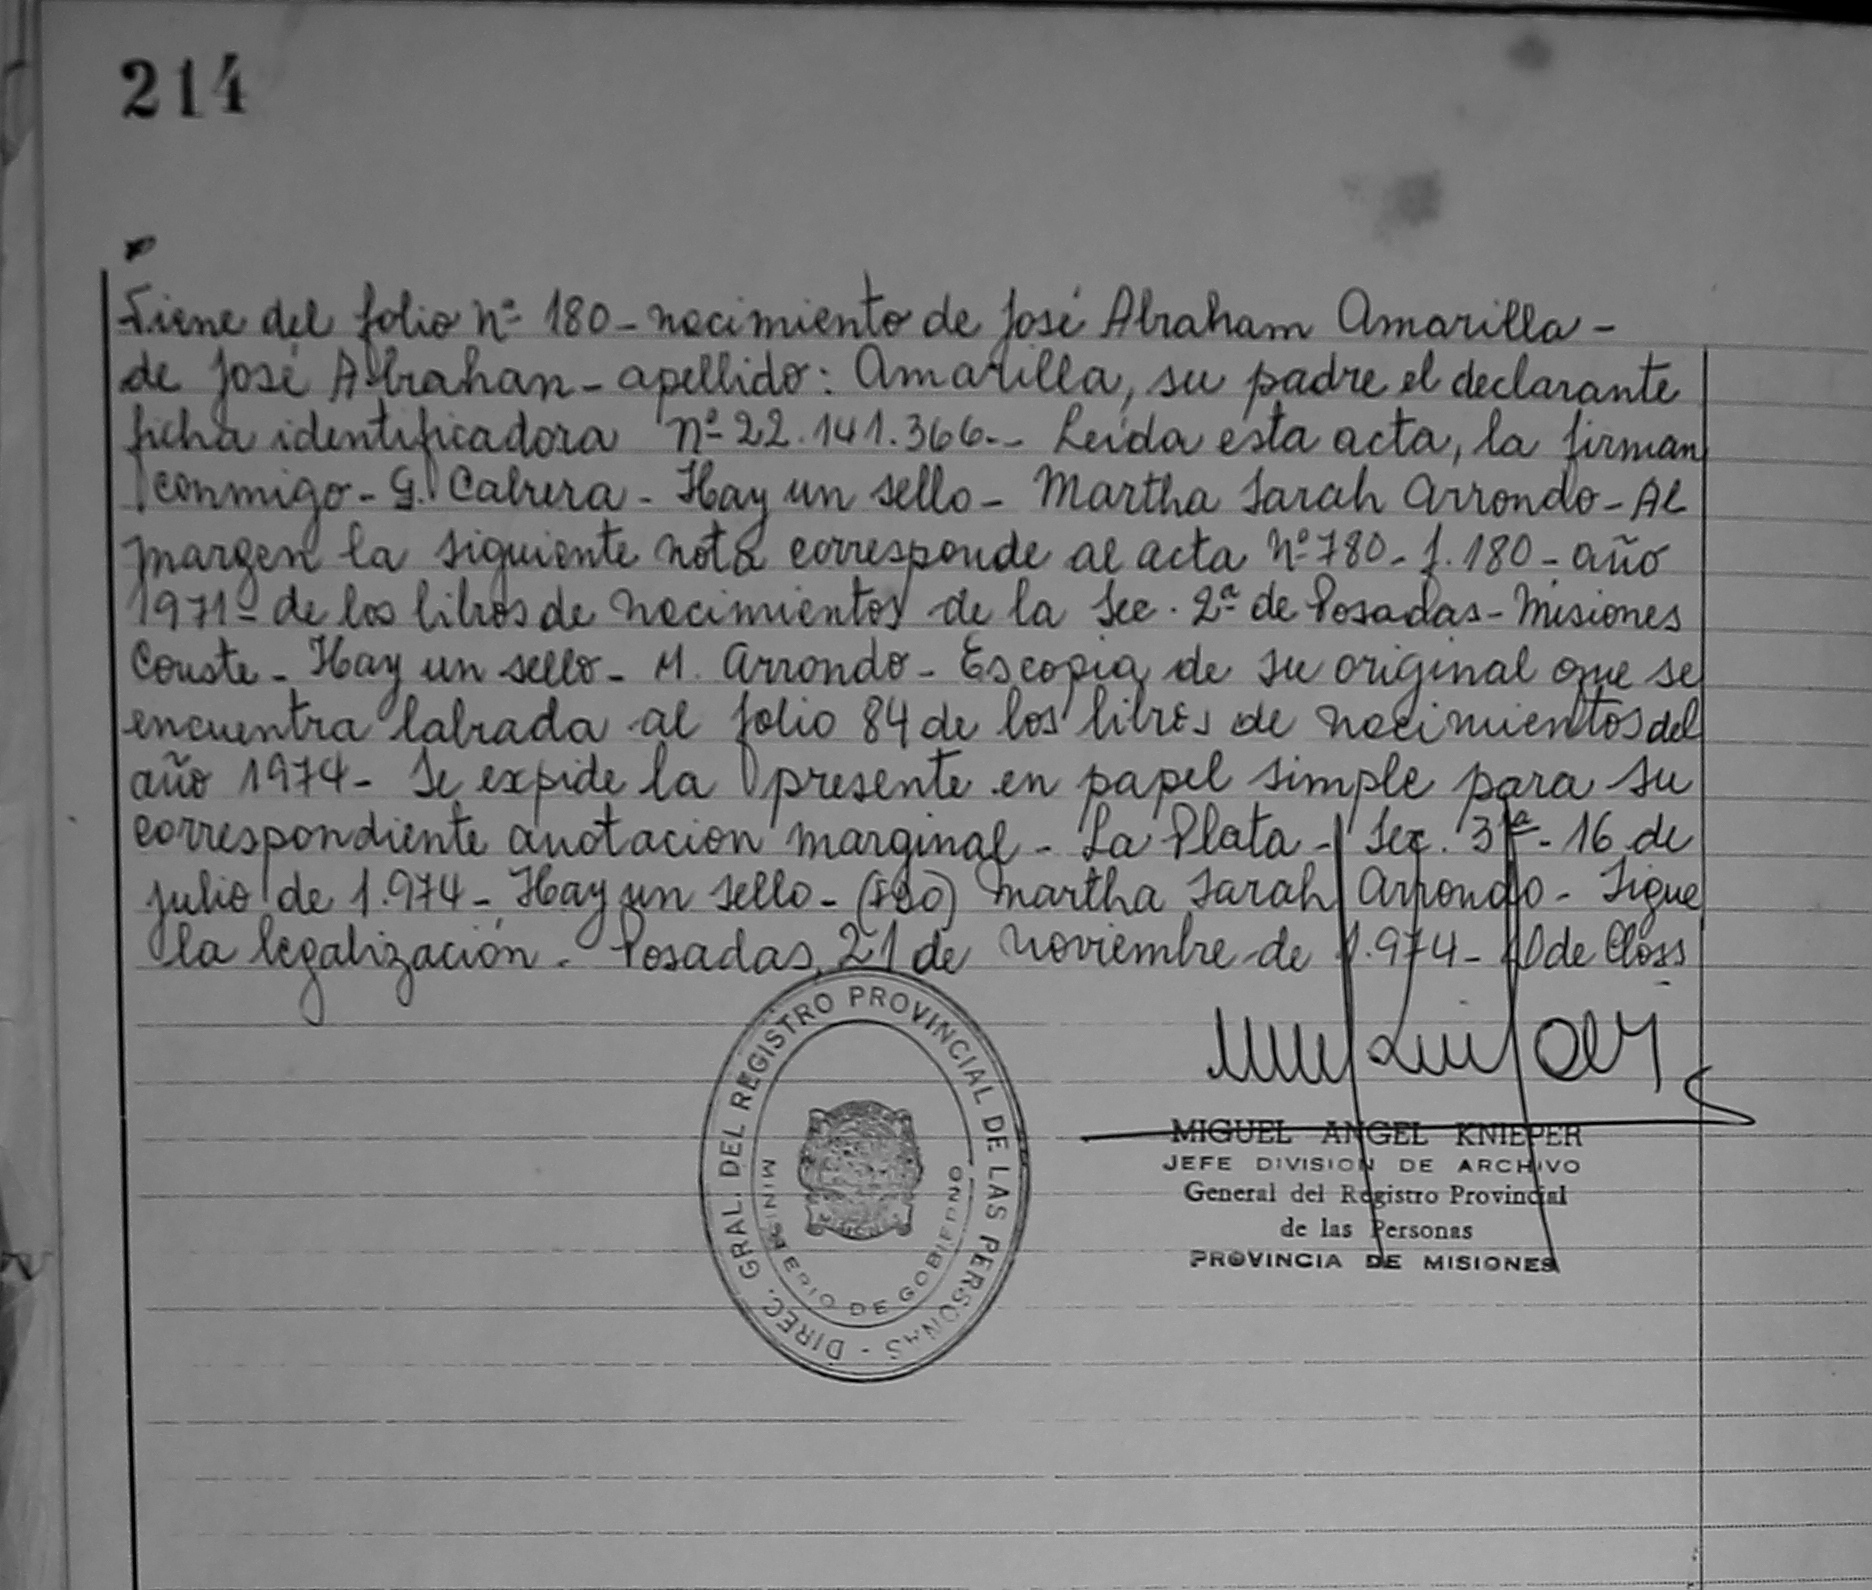 214
Viene del folio nº 180 - nacimiento de José Abraham Amarilla -
de José Abrahan - apellido: Amarilla, su padre el declarante
ficha identificadora nº 22.141.366.- Leída esta acta, la firman
conmigo - G. Cabrera - Hay un sello - Martha Sarah Arrondo - Al
margen la siguiente nota corresponde al acta nº 780 - f. 180 - año
1971 - de los libros de nacimientos de la Sec. 2ª de Posadas - Misiones
Conste - Hay un sello - M. Arrondo - Es copia de su original que se
encuentra labrada al folio 84 de los libros de nacimientos del
año 1974 - Se expide la presente en papel simple para su
correspondiente anotacion marginal - La Plata - Sec. 3ª - 16 de
julio de 1.974 - Hay un sello - (Fdo) Martha Sarah Arrondo - Sigue
la legalización. Posadas, 21 de noviembre de 1.974 - de Closs
DIREC. GRAL. DEL REGISTRO PROVINCIAL DE LAS PERSONAS -
MINISTERIO DE GOBIERNO
MIGUEL ANGEL KNIEPER
JEFE DIVISION DE ARCHIVO
General del Registro Provincial
de las Personas
PROVINCIA DE MISIONES